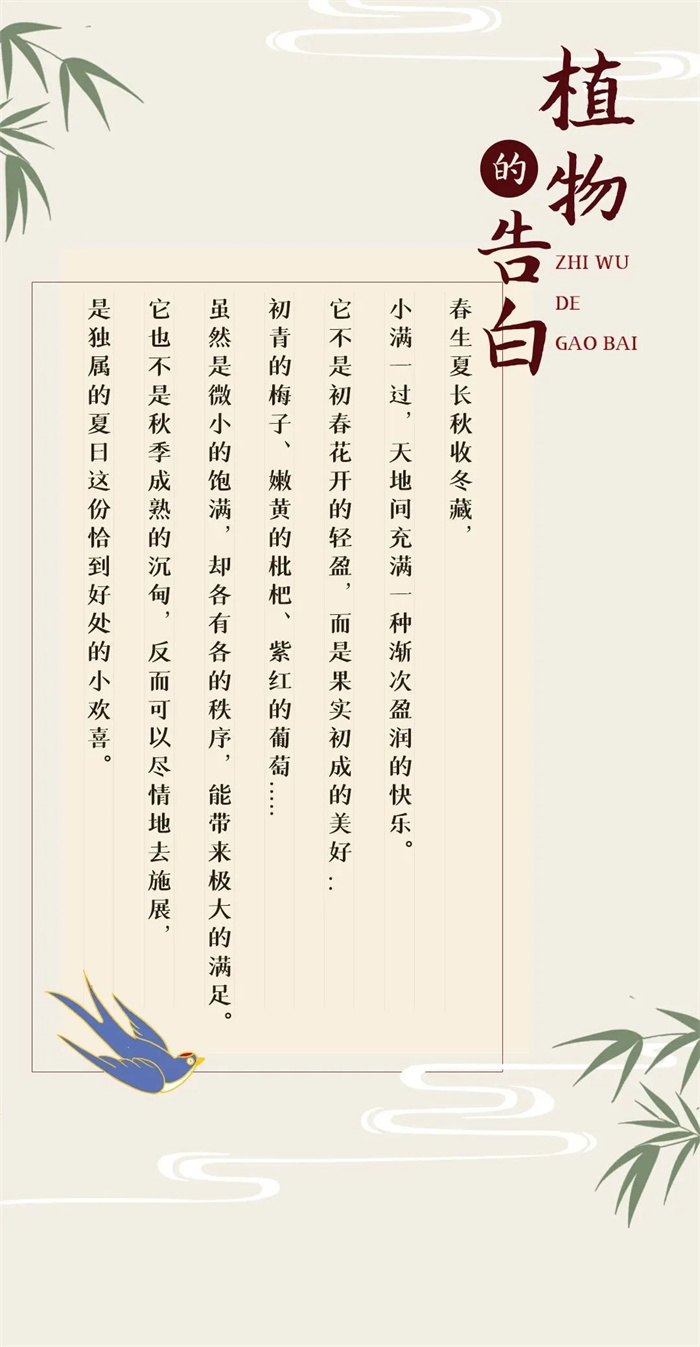 植物
的
告白
ZHI WU
DE
GAO BAI
春生夏长秋收冬藏，
小满一过，天地间充满一种渐次盈润的快乐。
它不是初春花开的轻盈，而是果实初成的美好：
初青的梅子、嫩黄的枇杷、紫红的葡萄……
虽然是微小的饱满，却各有各的秩序，能带来极大的满足。
它也不是秋季成熟的沉甸，反而可以尽情地去施展，
是独属的夏日这份恰到好处的小欢喜。